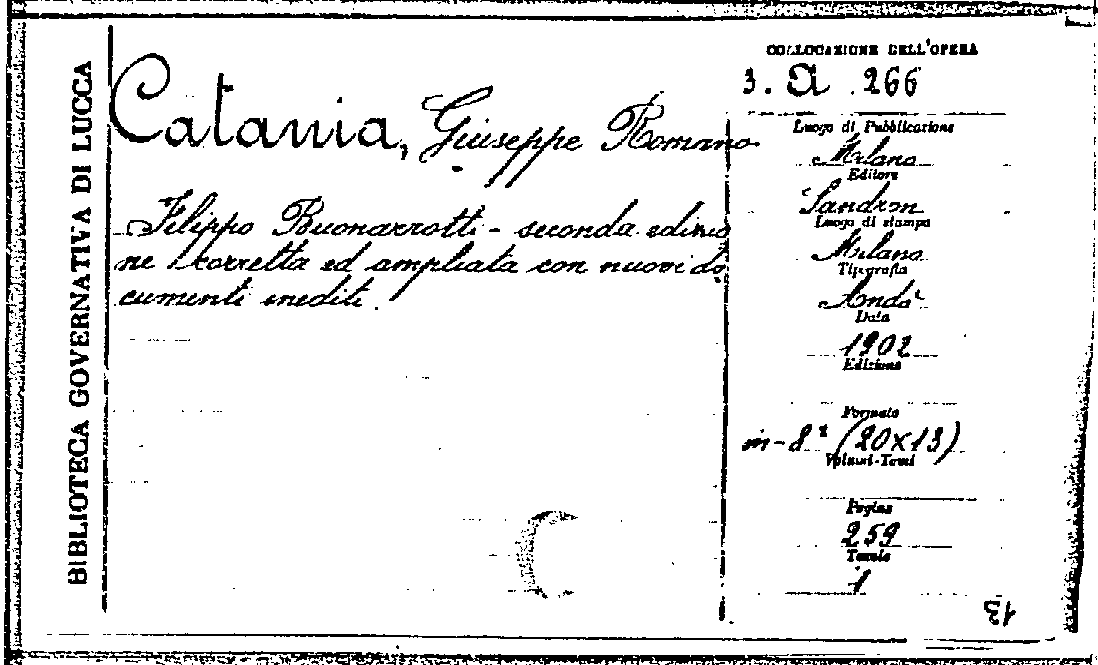 BIBLIOTECA GOVERNATIVA DI LUCCA
Catania, Giuseppe Romano
Filippo Buonarrotti - seconda edizio
ne corretta ed ampliata con nuovi do
cumenti inediti.
COLLOCAZIONE DELL'OPERA
3. a. 266
Luogo di Pubblicazione
Milano
Editore
Sandron
Luogo di stampa
Milano
Tipografia
Andò
Data
1902
Edizione
Formato
in-8° (20x13)
Volumi-Tomi
Pagine
259
Tavole
1
13